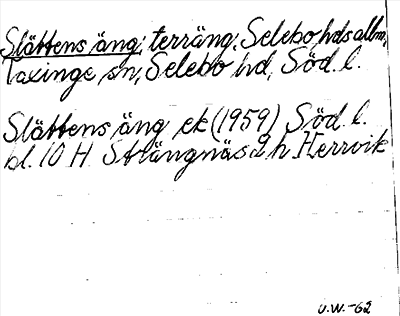 Slåttens äng, terräng, Selebo hds allm,
Taxinge sn, Selebo hd, Söd. l.
Slåttens äng ek (1959) Söd. l.
bl. 10 H Strängnäs 2 h Herrvik
U.W.-62